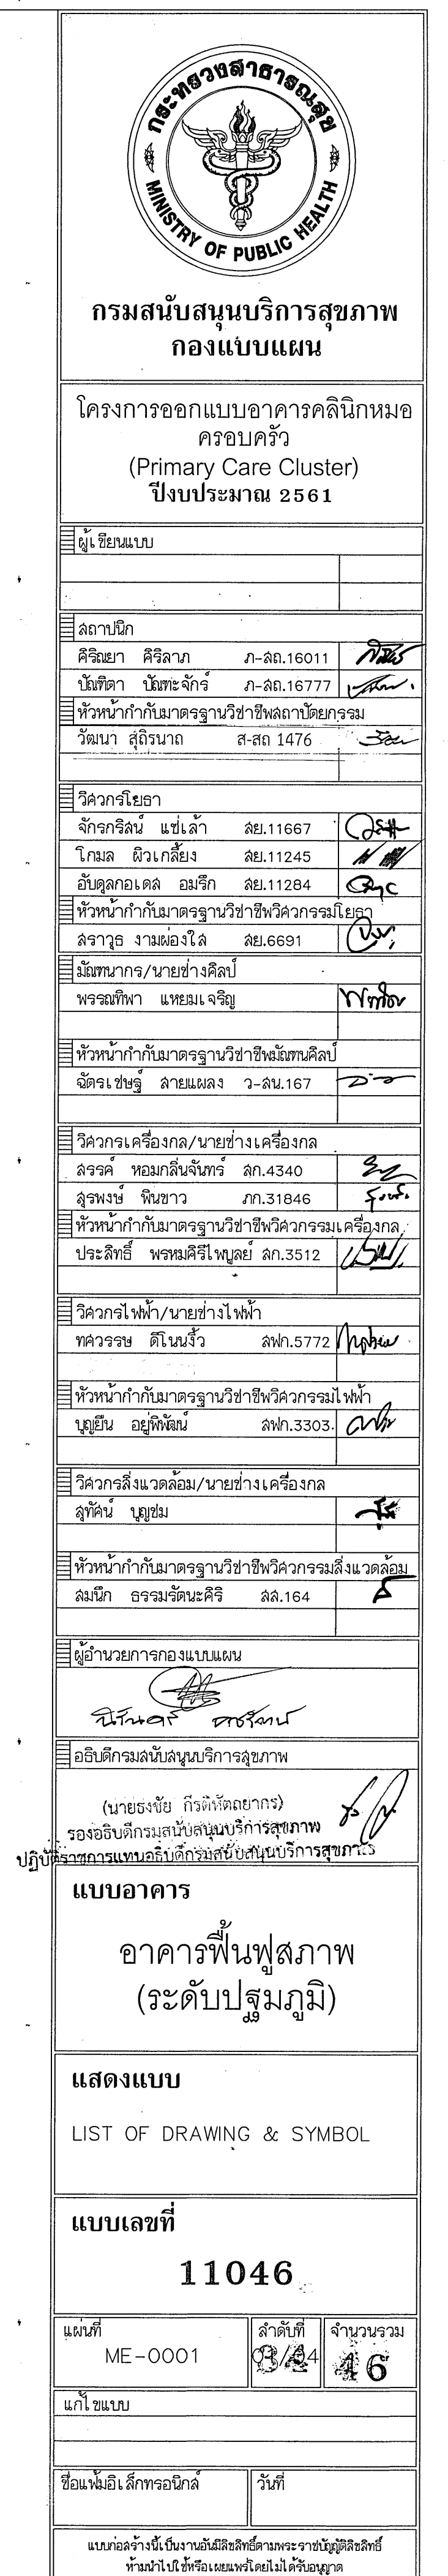 กระทรวงสาธารณสุข
MINISTRY OF PUBLIC HEALTH
กรมสนับสนุนบริการสุขภาพ
กองแบบแผน
โครงการออกแบบอาคารคลินิกหมอ
ครอบครัว
(Primary Care Cluster)
ปีงบประมาณ 2561
ผู้เขียนแบบ
สถาปนิก
ศิริณยา ศิริลาภ ภ-สถ.16011
ปัณฑิตา ปัณฑะจักร์ ภ-สถ.16777
หัวหน้ากำกับมาตรฐานวิชาชีพสถาปัตยกรรม
วัฒนา สุถิรนาถ ส-สถ 1476
วิศวกรโยธา
จักรกริสน์ แซ่เล้า สย.11667
โกมล ผิวเกลี้ยง สย.11245
อับดุลกอเดส อมรึก สย.11284
หัวหน้ากำกับมาตรฐานวิชาชีพวิศวกรรมโยธา
สราวุธ งามผ่องใส สย.6691
มัณฑนากร/นายช่างศิลป์
พรรณทิพา แหยมเจริญ
หัวหน้ากำกับมาตรฐานวิชาชีพมัณฑนศิลป์
ฉัตรเชษฐ์ สายแผลง ว-สน.167
วิศวกรเครื่องกล/นายช่างเครื่องกล
สรรค์ หอมกลิ่นจันทร์ สก.4340
สุรพงษ์ พินขาว ภก.31846
หัวหน้ากำกับมาตรฐานวิชาชีพวิศวกรรมเครื่องกล
ประสิทธิ์ พรหมศิริไพบูลย์ สก.3512
วิศวกรไฟฟ้า/นายช่างไฟฟ้า
ทศวรรษ ดีโนนงิ้ว สฟก.5772
หัวหน้ากำกับมาตรฐานวิชาชีพวิศวกรรมไฟฟ้า
บุญยืน อยู่พิพัฒน์ สฟก.3303
วิศวกรสิ่งแวดล้อม/นายช่างเครื่องกล
สุทัศน์ บุญชม
หัวหน้ากำกับมาตรฐานวิชาชีพวิศวกรรมสิ่งแวดล้อม
สมนึก ธรรมรัตนะศิริ สส.164
ผู้อำนวยการกองแบบแผน
อธิบดีกรมสนับสนุนบริการสุขภาพ
(นายธงชัย กีรติหัตถยากร)
รองอธิบดีกรมสนับสนุนบริการสุขภาพ
ปฏิบัติราชการแทนอธิบดีกรมสนับสนุนบริการสุขภาพ
แบบอาคาร
อาคารฟื้นฟูสภาพ
(ระดับปฐมภูมิ)
แสดงแบบ
LIST OF DRAWING & SYMBOL
แบบเลขที่
11046
แผ่นที่ ลำดับที่ จำนวนรวม
ME-0001
แก้ไขแบบ
ชื่อแฟ้มอิเล็กทรอนิกส์ วันที่
แบบก่อสร้างนี้เป็นงานอันมีลิขสิทธิ์ตามพระราชบัญญัติลิขสิทธิ์
ห้ามนำไปใช้หรือเผยแพร่โดยไม่ได้รับอนุญาต